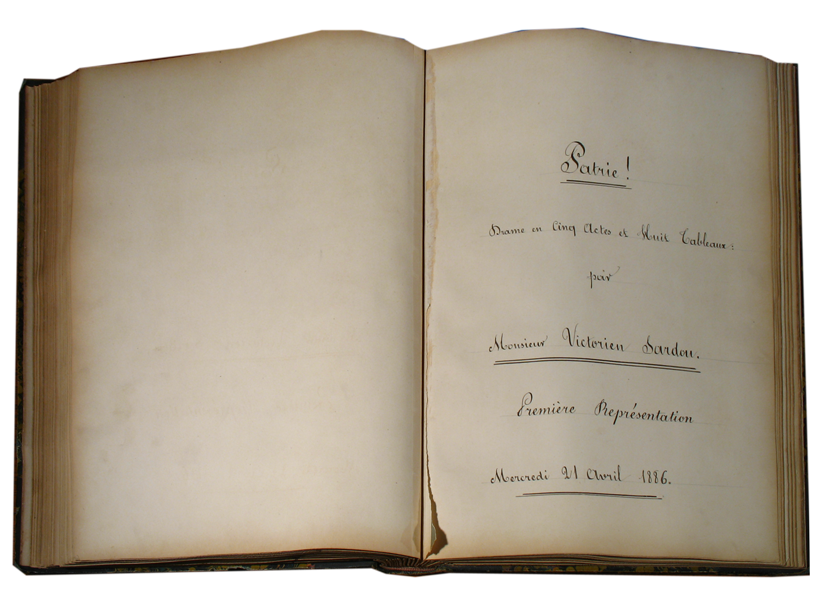 Patrie !
Drame en Cinq Actes et Huit Tableaux :
par
Monsieur Victorien Sardou.
Première Représentation
Mercredi 21 Avril 1886.